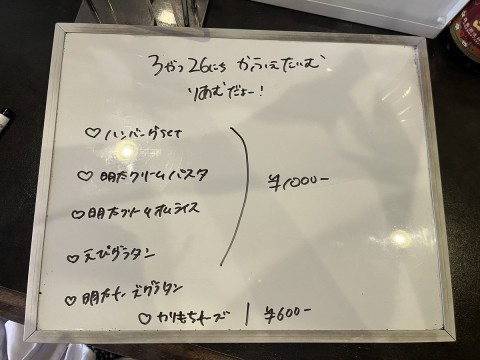 3がつ26にち かふぇたいむ
りあむだよー!
♡ハンバーグset
♡明太クリームパスタ
♡明太クリームオムライス
¥1000-
♡えびグラタン
♡明太チーズグラタン
♡かりもちチーズ | ¥600-